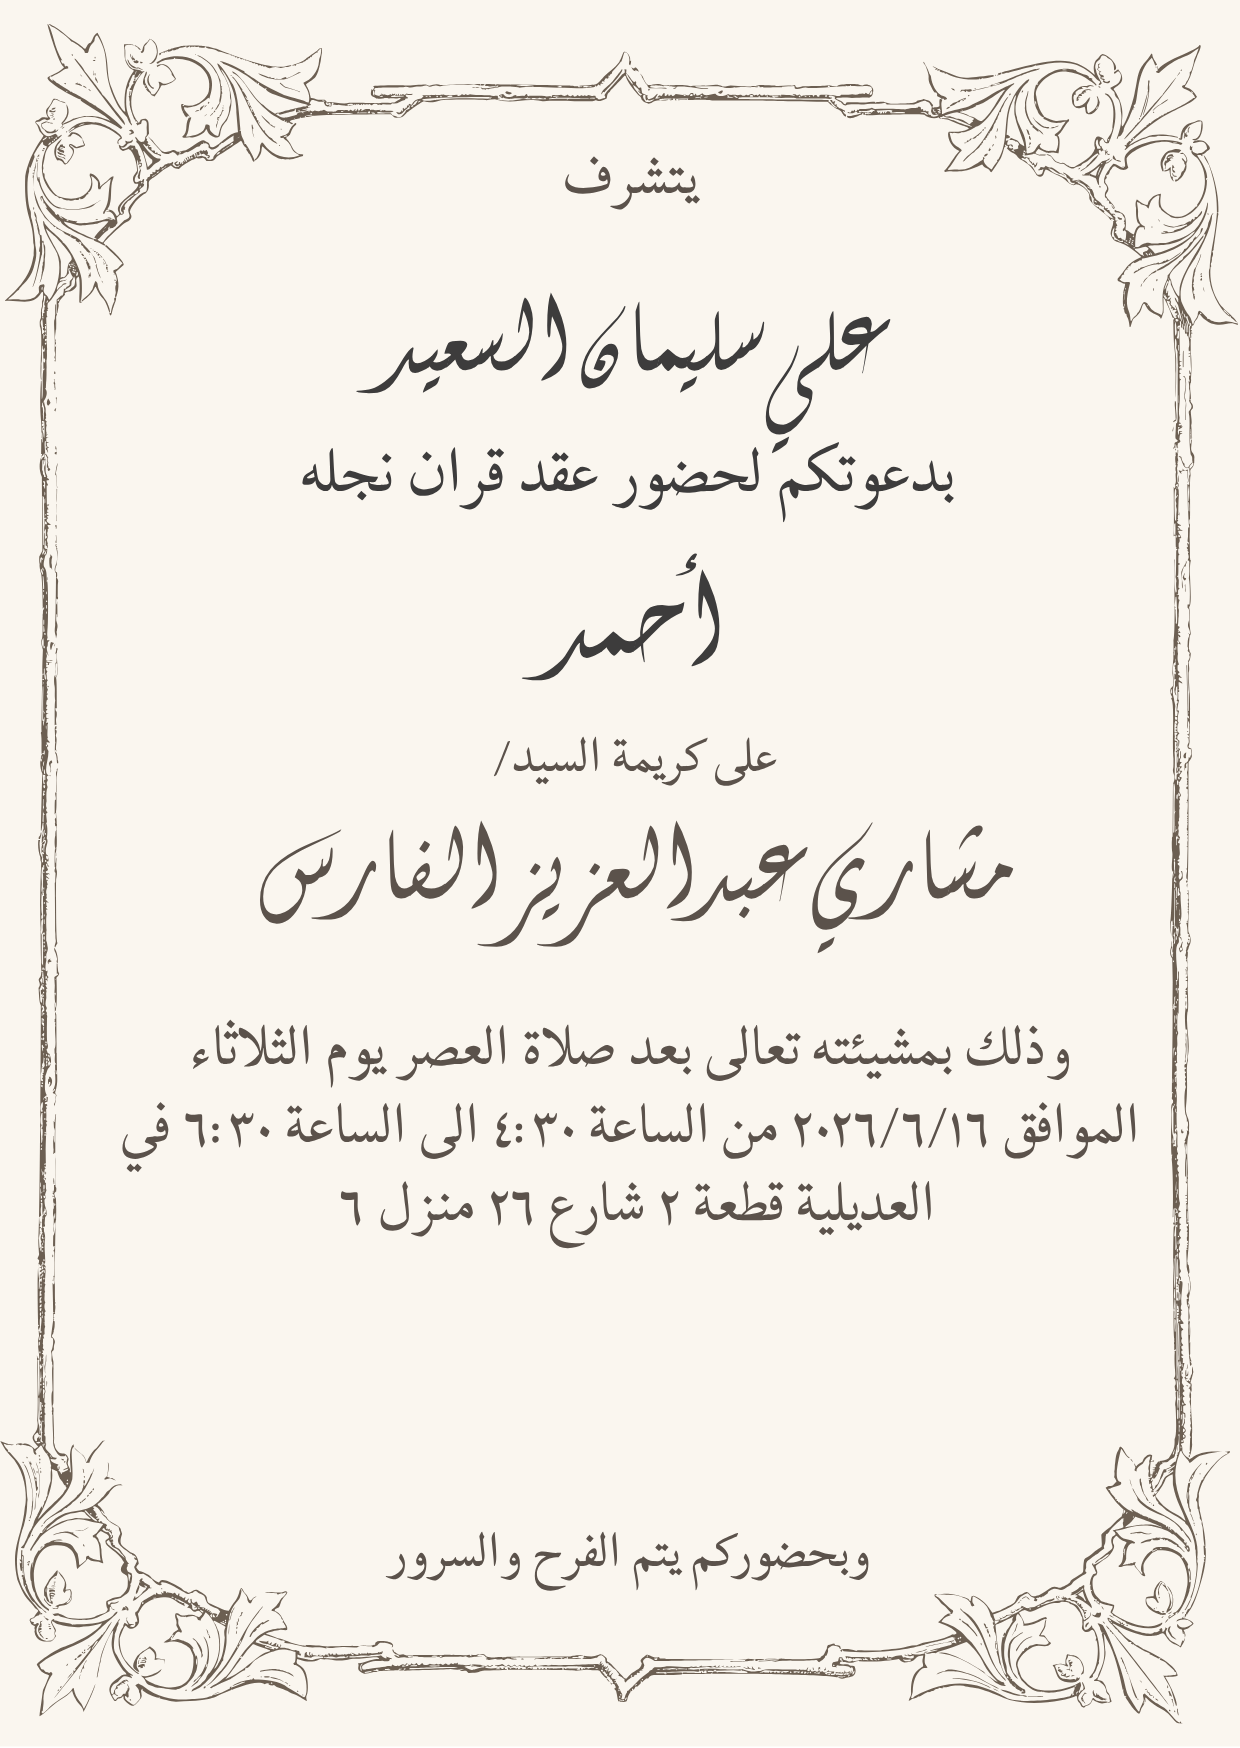 يتشرف
علي سليمان السعيد
بدعوتكم لحضور عقد قران نجله
أحمد
على كريمة السيد/
مشاري عبدالعزيز الفارس
وذلك بمشيئته تعالى بعد صلاة العصر يوم الثلاثاء
الموافق ٢٠٢٦/٦/١٦ من الساعة ٤:٣٠ الى الساعة ٦:٣٠ في
العديلية قطعة ٢ شارع ٢٦ منزل ٦
وبحضوركم يتم الفرح والسرور